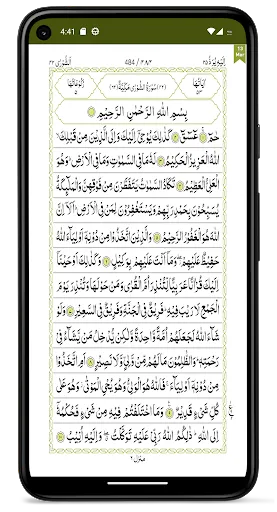 4:41
13
Mar
اَلشُّوْرٰى ٤٢
484 / ٣٨٢
اِلَيْهِ يُرَدُّ ٢٥
اٰيَاتُهَا ٥٣
(٤٢) سُوْرَةُ الشُّوْرٰى مَكِّيَّةٌ (٦٢)
رُكُوْعَاتُهَا ٥
بِسْمِ اللّٰهِ الرَّحْمٰنِ الرَّحِيْمِ
حٰمٓ ۚ ١ عٓسٓقٓ ٢ كَذٰلِكَ يُوْحِيْٓ اِلَيْكَ وَاِلَى الَّذِيْنَ مِنْ قَبْلِكَ ۙ
اللّٰهُ الْعَزِيْزُ الْحَكِيْمُ ٣ لَهٗ مَا فِى السَّمٰوٰتِ وَمَا فِى الْاَرْضِ ؕ وَهُوَ
الْعَلِىُّ الْعَظِيْمُ ٤ تَكَادُ السَّمٰوٰتُ يَتَفَطَّرْنَ مِنْ فَوْقِهِنَّ وَالْمَلٰٓئِكَةُ
يُسَبِّحُوْنَ بِحَمْدِ رَبِّهِمْ وَيَسْتَغْفِرُوْنَ لِمَنْ فِى الْاَرْضِ ؕ اَلَآ اِنَّ
اللّٰهَ هُوَ الْغَفُوْرُ الرَّحِيْمُ ٥ وَالَّذِيْنَ اتَّخَذُوْا مِنْ دُوْنِهٖٓ اَوْلِيَآءَ اللّٰهُ
حَفِيْظٌ عَلَيْهِمْ ۖ وَمَآ اَنْتَ عَلَيْهِمْ بِوَكِيْلٍ ٦ وَكَذٰلِكَ اَوْحَيْنَآ
اِلَيْكَ قُرْاٰنًا عَرَبِيًّا لِّتُنْذِرَ اُمَّ الْقُرٰى وَمَنْ حَوْلَهَا وَتُنْذِرَ يَوْمَ
الْجَمْعِ لَا رَيْبَ فِيْهِ ؕ فَرِيْقٌ فِى الْجَنَّةِ وَفَرِيْقٌ فِى السَّعِيْرِ ٧ وَلَوْ
شَآءَ اللّٰهُ لَجَعَلَهُمْ اُمَّةً وَّاحِدَةً وَّلٰكِنْ يُّدْخِلُ مَنْ يَّشَآءُ فِيْ
رَحْمَتِهٖ ؕ وَالظّٰلِمُوْنَ مَا لَهُمْ مِّنْ وَّلِيٍّ وَّلَا نَصِيْرٍ ٨ اَمِ اتَّخَذُوْا
مِنْ دُوْنِهٖٓ اَوْلِيَآءَ ۚ فَاللّٰهُ هُوَ الْوَلِىُّ وَهُوَ يُحْىِ الْمَوْتٰى ؗ وَهُوَ عَلٰى
كُلِّ شَيْءٍ قَدِيْرٌ ٩ وَمَا اخْتَلَفْتُمْ فِيْهِ مِنْ شَيْءٍ فَحُكْمُهٗٓ
اِلَى اللّٰهِ ؕ ذٰلِكُمُ اللّٰهُ رَبِّيْ عَلَيْهِ تَوَكَّلْتُ ۖ وَاِلَيْهِ اُنِيْبُ ١٠
منزل ٦